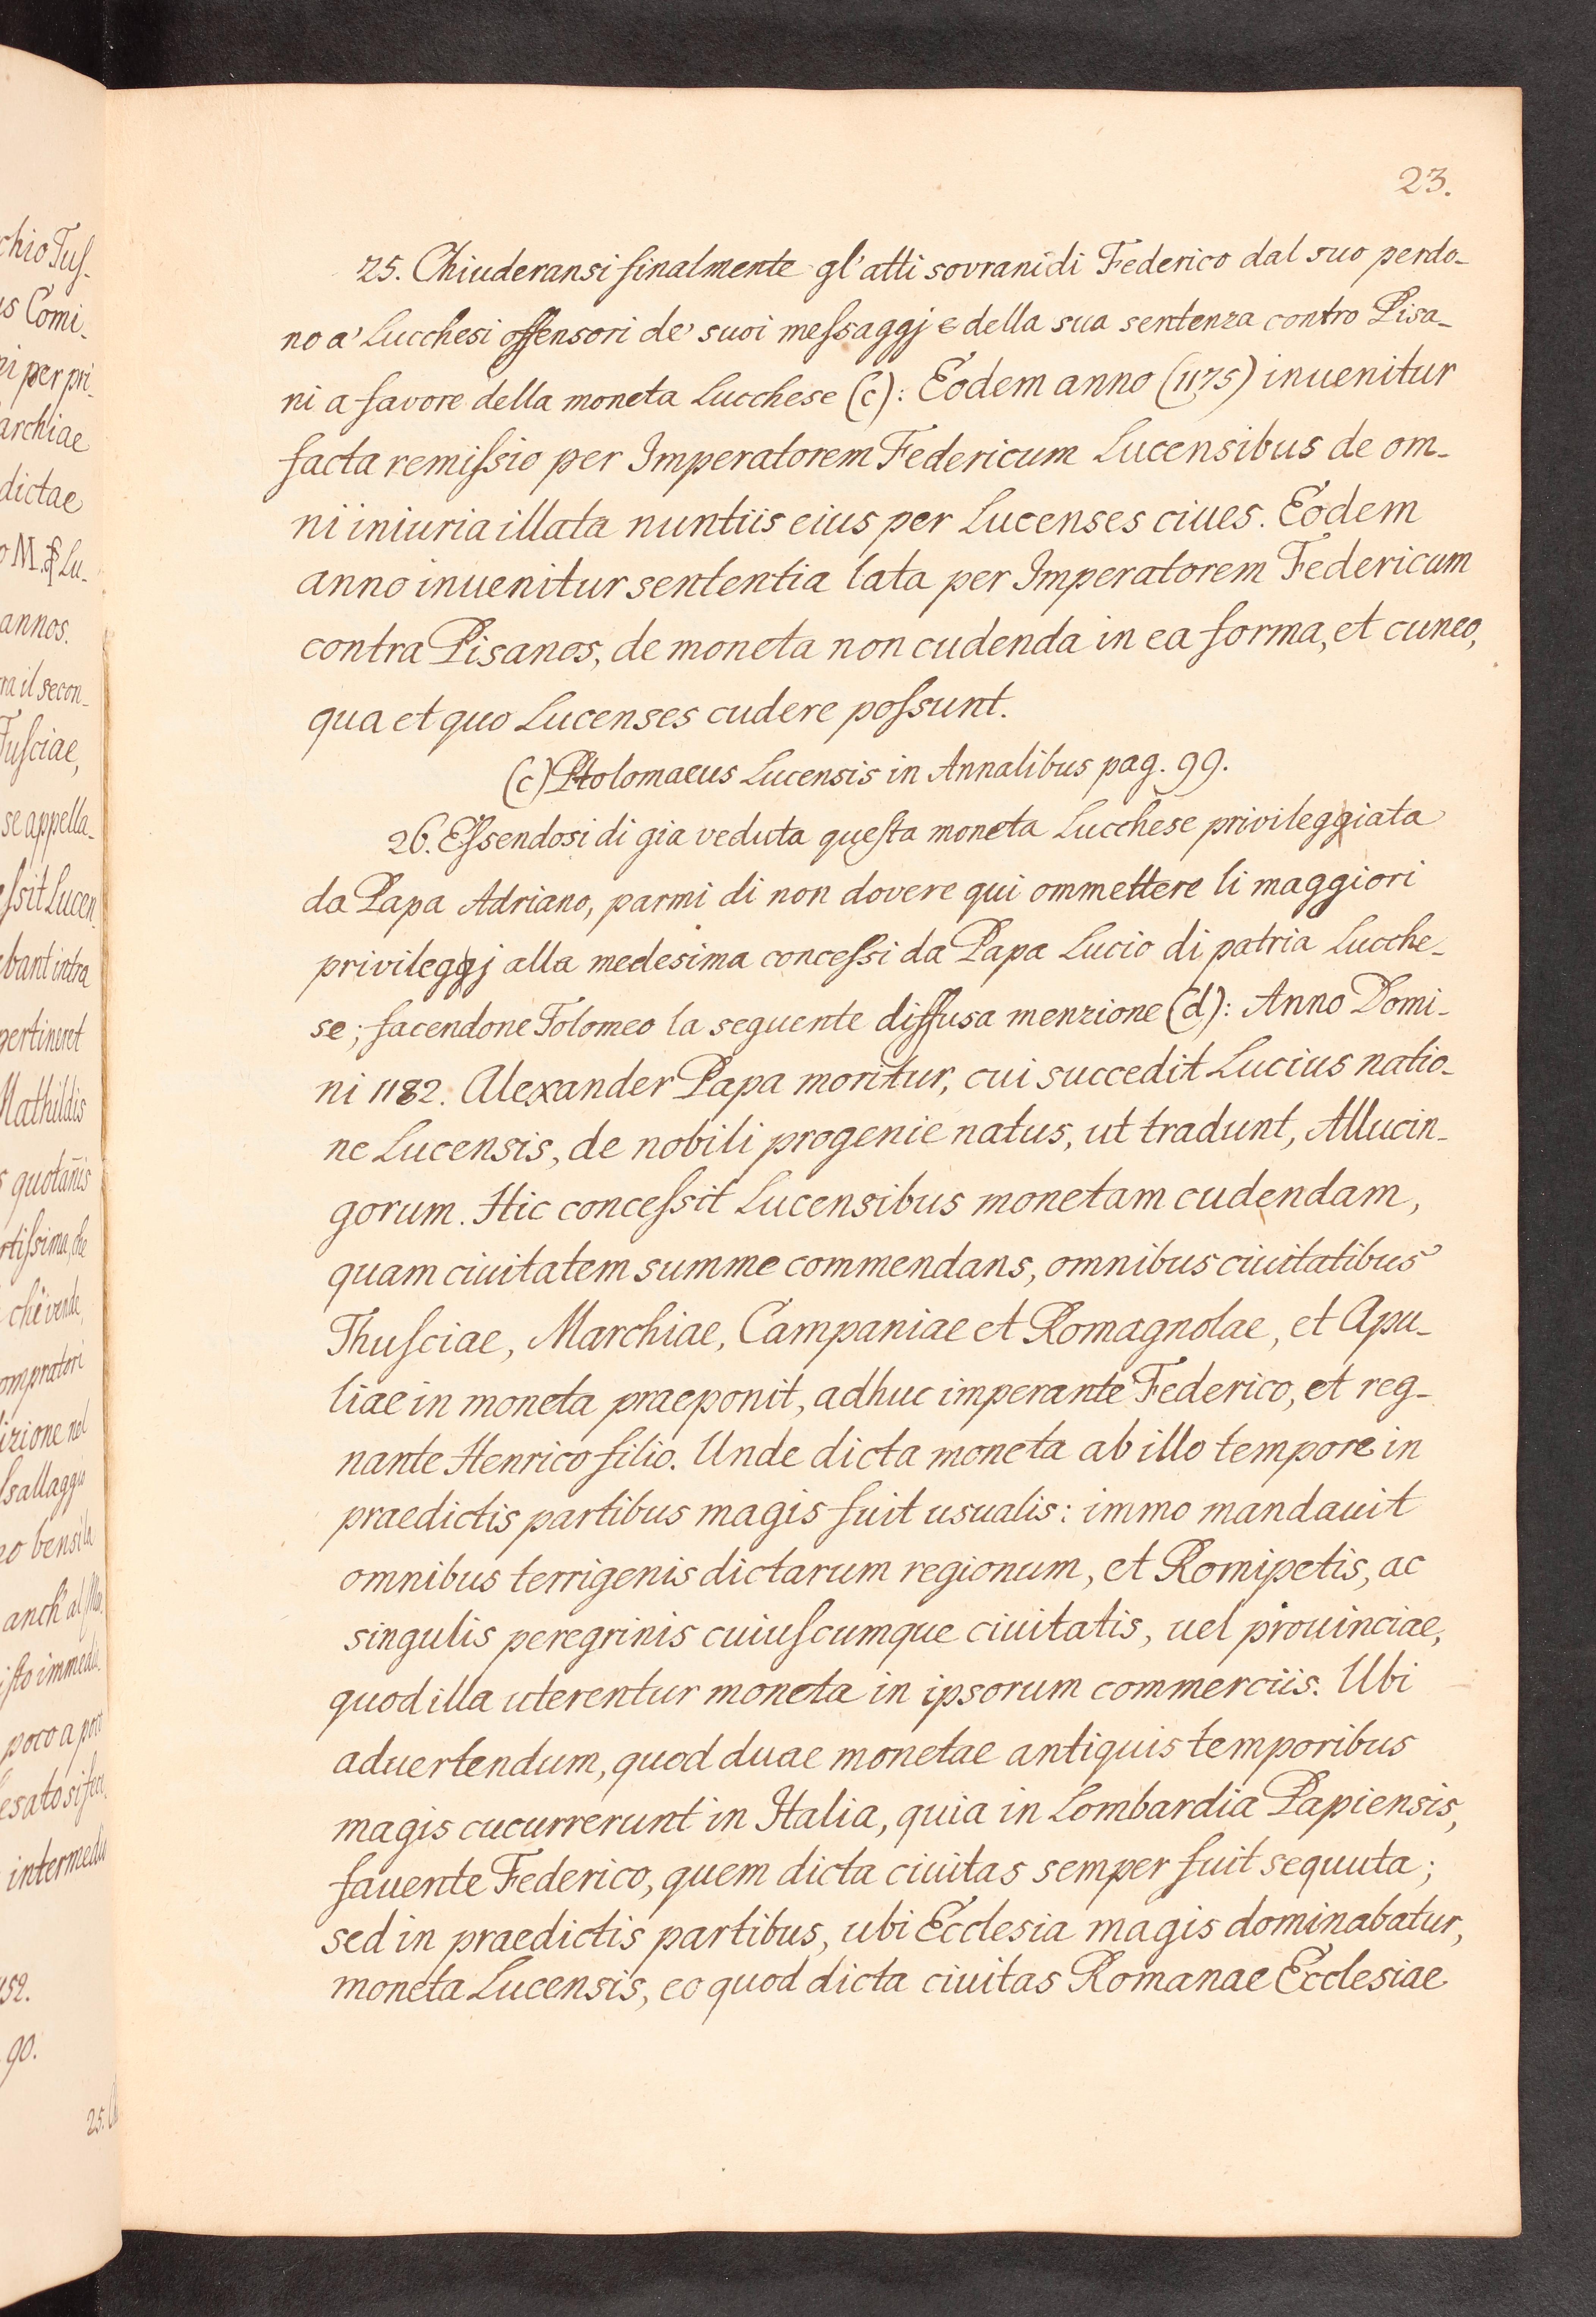 23.
25. Chiuderansi finalmente gl'atti sovrani di Federico dal suo perdo-
no a' Lucchesi offensori de' suoi meſsaggj e della sua sentenza contro Pisa-
ni a favore della moneta Lucchese (c): Eodem anno (1175) inuenitur
facta remiſsio per Imperatorem Federicum Lucensibus de om-
ni iniuria illata nuntiis eius per Lucenses ciues. Eodem
anno inuenitur sententia lata per Imperatorem Federicum
contra Pisanos, de moneta non cudenda in ea forma, et cuneo,
qua et quo Lucenses cudere poſsunt.
(c) Ptolomaeus Lucensis in Annalibus pag. 99.
26. Eſsendosi di gia veduta queſta moneta Lucchese privileggiata
da Papa Adriano, parmi di non dovere qui ommettere li maggiori
privileggj alla medesima conceſsi da Papa Lucio di patria Lucche-
se; facendone Tolomeo la seguente diffusa menzione (d): Anno Domi-
ni 1182. Alexander Papa moritur, cui succedit Lucius natio-
ne Lucensis, de nobili progenie natus, ut tradunt, Allucin-
gorum. Hic conceſsit Lucensibus monetam cudendam,
quam ciuitatem summe commendans, omnibus ciuitatibus
Thuſciae, Marchiae, Campaniae et Romagnolae, et Apu-
liae in moneta praeponit, adhuc imperante Federico, et reg-
nante Henrico filio. Unde dicta moneta ab illo tempore in
praedictis partibus magis fuit usualis: immo mandauit
omnibus terrigenis dictarum regionum, et Romipetis, ac
singulis peregrinis cuiuſcumque ciuitatis, uel prouinciae,
quod illa uterentur moneta in ipsorum commerciis. Ubi
aduertendum, quod duae monetae antiquis temporibus
magis cucurrerunt in Italia, quia in Lombardia Papiensis,
fauente Federico, quem dicta ciuitas semper fuit sequuta;
sed in praedictis partibus, ubi Ecclesia magis dominabatur,
moneta Lucensis, eo quod dicta ciuitas Romanae Ecclesiae